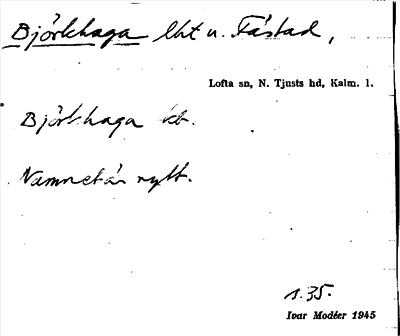 Björkhaga lht u. Fåstad,
Lofta sn, N. Tjusts hd, Kalm. l.
Björkhaga
Namnet är nytt.
s. 35.
Ivar Modéer 1945